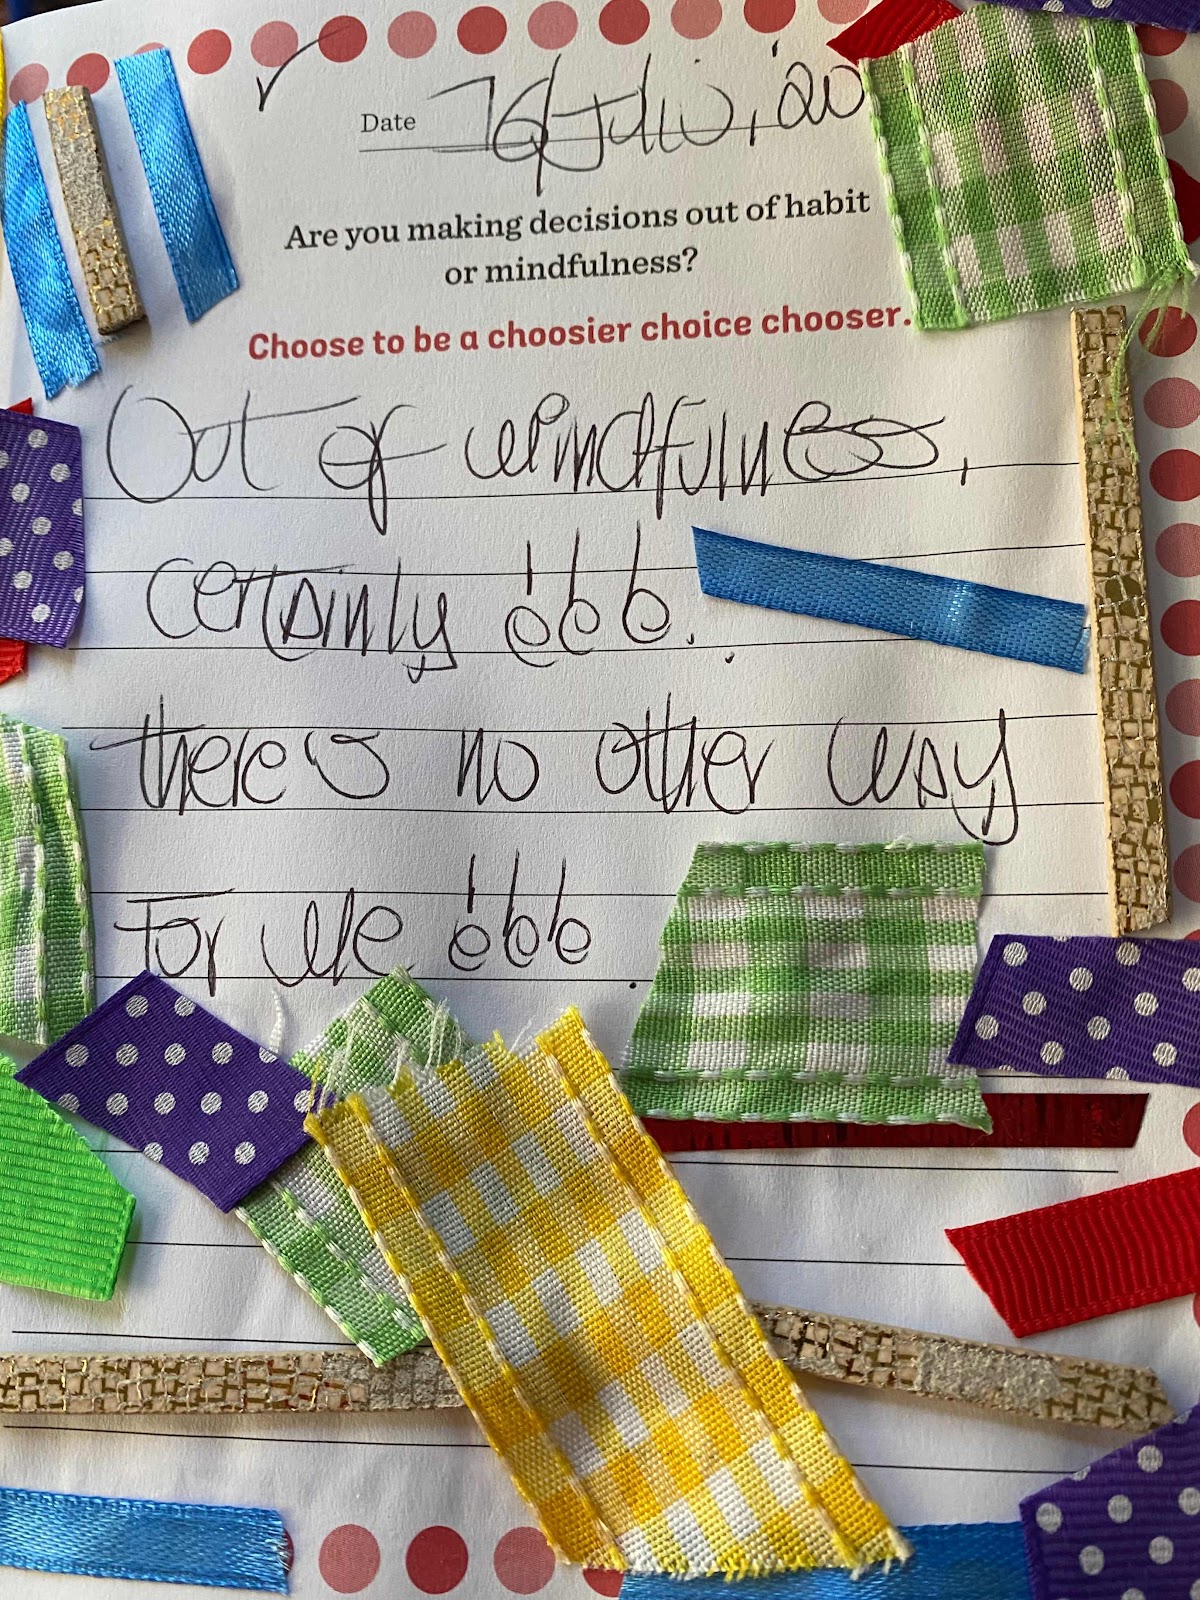 Date 16/Julio, '20
Are you making decisions out of habit
or mindfulness?
Choose to be a choosier choice chooser.
Out of mindfulness,
certainly
there's no other way
for me